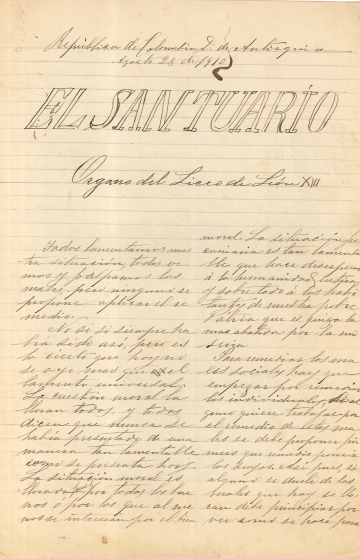 República de Colombia D. de Antioquia
Agosto 28 de 1910
EL SANTUARIO
Organo del Liceo de León XIII
Todos lamentamos nues
tra situación, todos ve
mos y palpamos los
males, pero ninguno se
propone aplicar el re
medio.
No sé si siempre ha
brá sido así, pero es
lo cierto que hoy no
se oye mas que el
lamento universal.
La cuestión moral la
lloran todos, y todos
dicen que nunca se
había presentado de una
manera tan lamentable
como se presenta hoy.
La situación moral es
llorada por todos los bue
nos o por los que al me
nos se interesan por el bien
moral. La situación pe
cuniaria es tan lamenta
ble que hace desesperar
a la humanidad
y sobre todo a los habi
tantes de nuestra pobre
Patria que es quizá la
mas abatida por la mi
seria.
Para remediar los ma
les sociales hay que
empezar por remediar
los individuales, si al
guno quiere trabajar por
el remedio de estos ma
les se debe proponer pri
mero que
los suyos. Así pues si
alguno se duele de los
males que hay se llo
ran debe principiar por
ver como se hace para